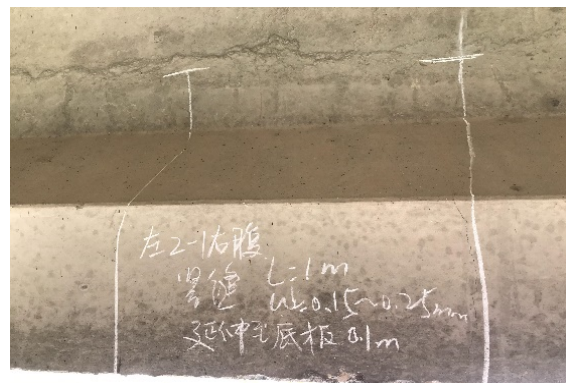 左2-1右腹
竖缝 L=1m
W=0.15~0.25mm
延伸至底板0.1m